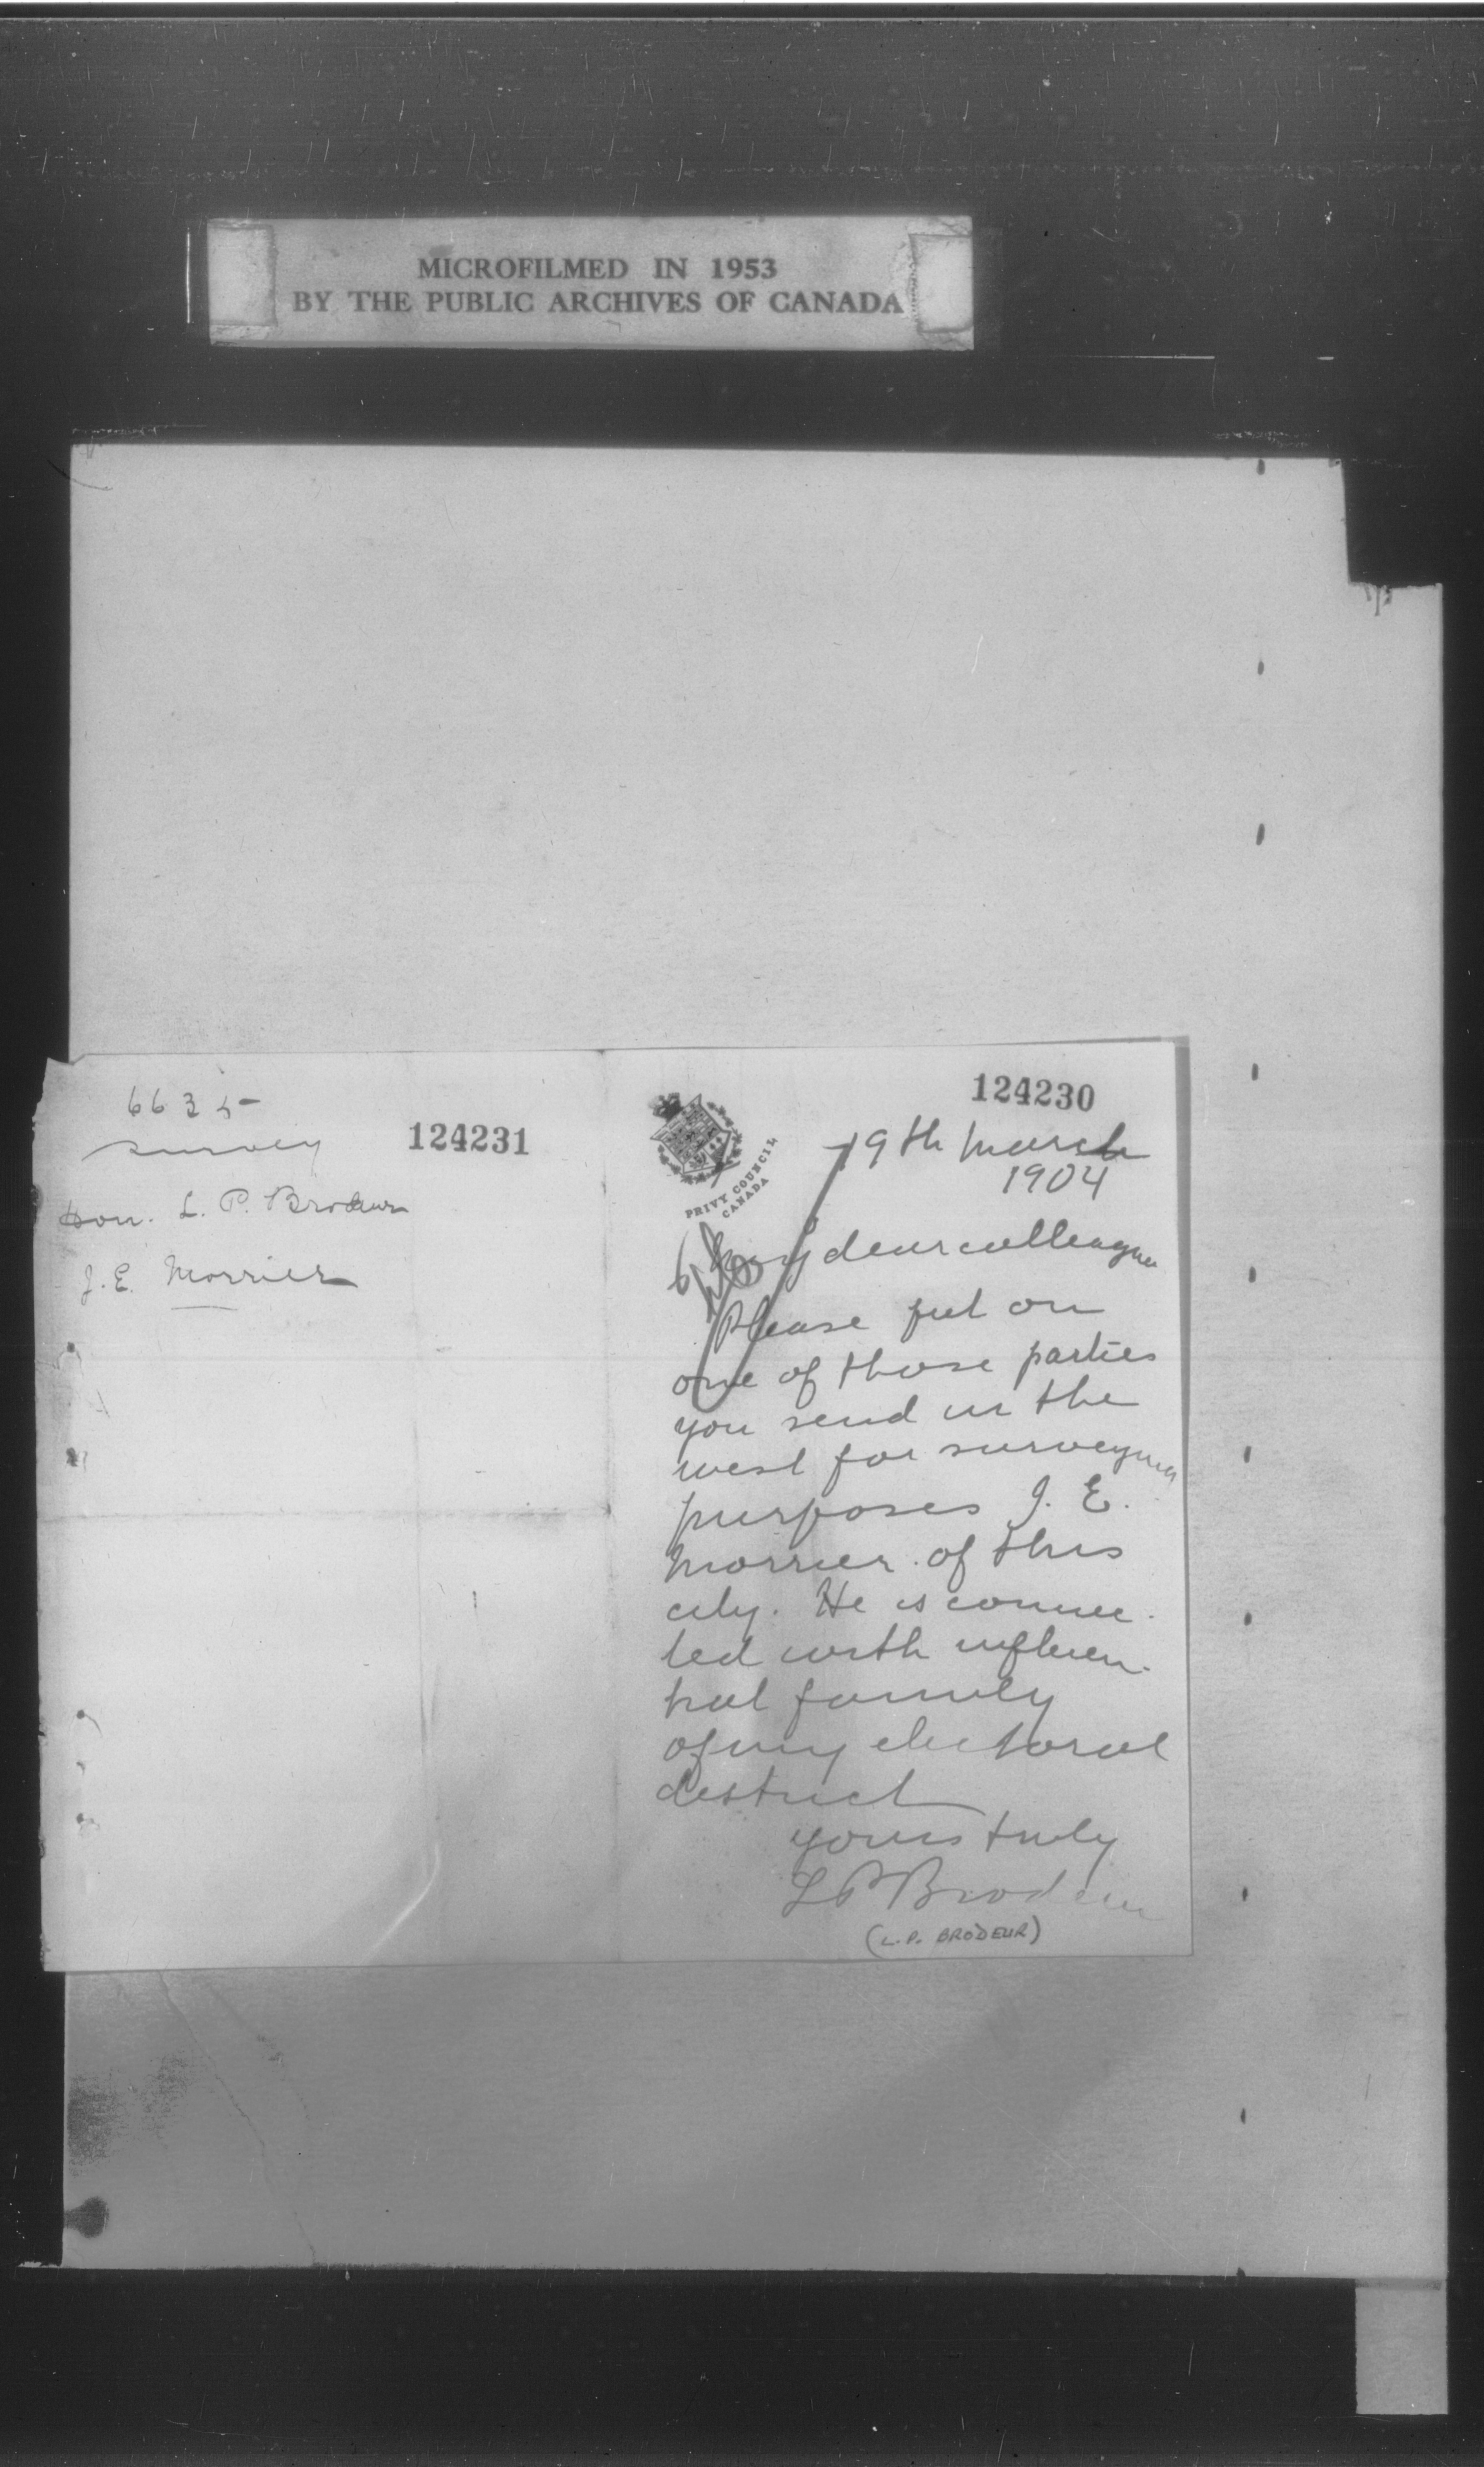 MICROFILMED IN 1953
BY THE PUBLIC ARCHIVES OF CANADA
6635
survey
124231
Hon. L. P. Brodeur
J. E. Morrier
124230
PRIVY COUNCIL
CANADA
19th March
1904
My dear colleague
Please put on
one of those parties
you send in the
west for surveying
purposes J. E.
Morrier of this
city. He is connec-
ted with influen-
tial family
of my electoral
district
yours truly
L P Brodeur
(L.P. BRODEUR)